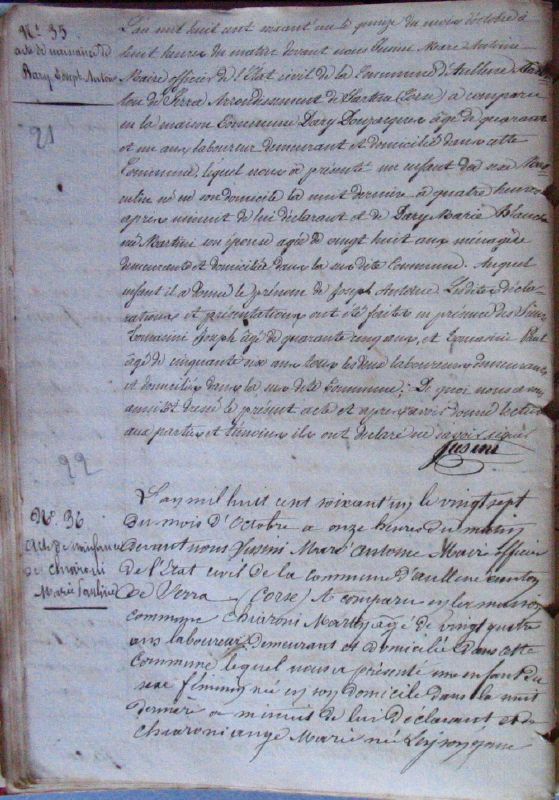 N.º 35
acte de naissance de
Dary Joseph Antoine
21
L'an mil huit cent soixant'un le quinze du mois d'octobre à
huit heures du matin devant nous Susini Marc Antoine
Maire officier de l'Etat civil de la Commune d'Aullene Can
ton de Serra Arrondissement de Sartene (Corse) a comparu
en la maison Commune Dary âgé de quarant
et un ans laboureur demeurant et domicilié dans cette
Commune, lequel nous a présenté un enfant du sexe Mas
culin né en son domicile la nuit dernière à quatre heures
après minuit de lui déclarant et de Dary Marie Blanche
née Martini son épouse agée de vingt huit ans ménagère
demeurante et domiciliée dans la susdite Commune. Auquel
enfant il a donné le prénom de Joseph Antoine. Lesdites décla
rations et présentations ont été faites en présence des Sieurs
Joseph âgé de quarante cinq ans, et Paul
âgé de cinquante six ans tous les deux laboureurs demeurants
et domiciliés dans la susdite Commune; De quoi nous avons
aussitôt dressé le présent acte et après avoir donné lecture
aux parties et témoins ils ont déclaré ne savoir signer
Susini
22
N.º 36
Acte de naissance
de Chiaroni
Marie Pauline
L'an mil huit cent soixant un le vingt sept
du mois d'Octobre a onze heures du matin
devant nous Susini Marc antoine Maire officier
de l'Etat civil de la commune d'aullene canton
de Serra (Corse) A comparu en la maison
commune Chiaroni agé de vingt quatre
ans laboureur demeurant et domicilié dans cette
Commune lequel nous a présenté un enfant du
sexe féminin née en son domicile dans la nuit
dernière a minuit de lui déclarant et de
Chiaroni ange Marie née son épouse